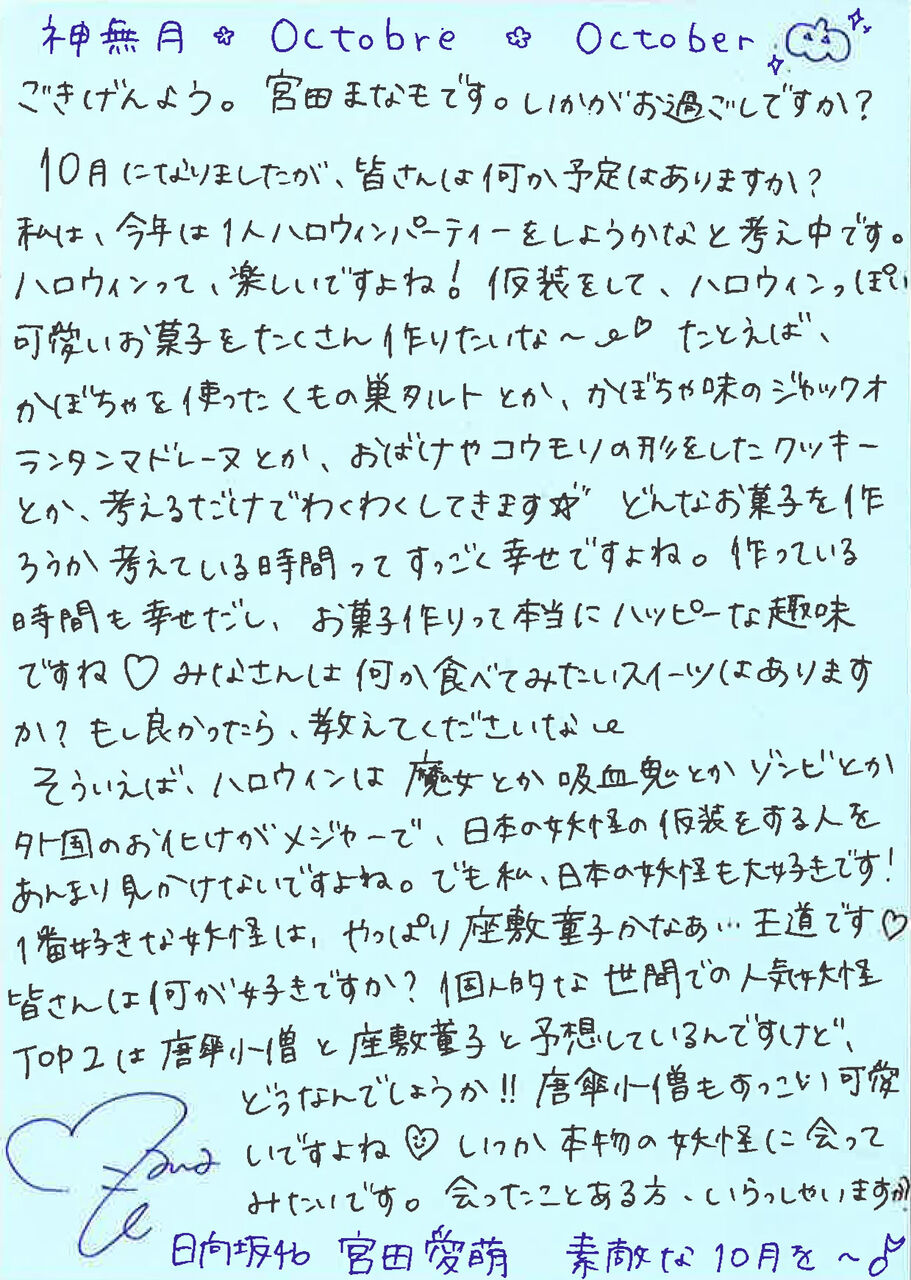 神無月 ✿ Octobre ✿ October
ごきげんよう。宮田まなもです。いかがお過ごしですか?
10月になりましたが、皆さんは何か予定はありますか?
私は、今年は1人ハロウィンパーティーをしようかなと考え中です。
ハロウィンって、楽しいですよね!仮装をして、ハロウィンっぽい
可愛いお菓子をたくさん作りたいな〜♡ たとえば、
かぼちゃを使ったくもの巣タルトとか、かぼちゃ味のジャックオ
ランタンマドレーヌとか、おばけやコウモリの形をしたクッキー
とか、考えるだけでわくわくしてきます☆ どんなお菓子を作
ろうか考えている時間ってすっごく幸せですよね。作っている
時間も幸せだし、お菓子作りって本当にハッピーな趣味
ですね♡ みなさんは何か食べてみたいスイーツはあります
か?もし良かったら、教えてくださいな
そういえば、ハロウィンは魔女とか吸血鬼とかゾンビとか
外国のお化けがメジャーで、日本の妖怪の仮装をする人を
あんまり見かけないですよね。でも私、日本の妖怪も大好きです!
1番好きな妖怪は、やっぱり座敷童子かなあ…王道です♡
皆さんは何が好きですか?個人的な世間での人気妖怪
TOP2は唐傘小僧と座敷童子と予想しているんですけど、
どうなんでしょうか!!唐傘小僧もすっごい可愛
いですよね♡ いつか本物の妖怪に会って
みたいです。会ったことある方、いらっしゃいますか?
日向坂46 宮田愛萌 素敵な10月を〜♪